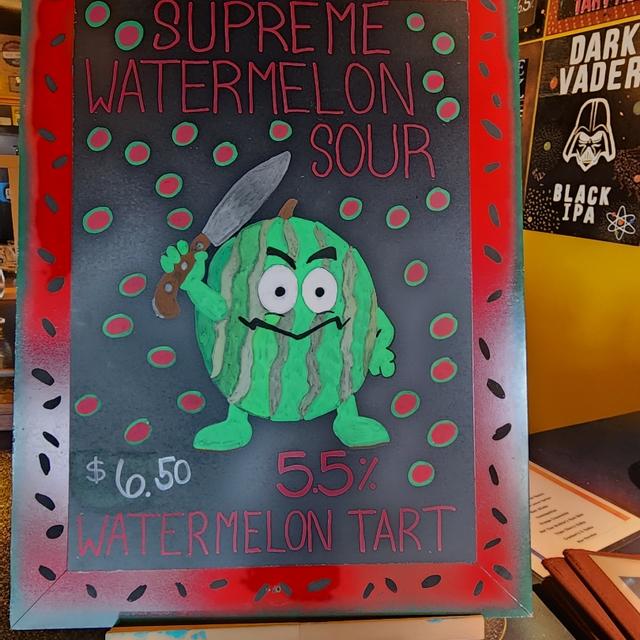 SUPREME
WATERMELON
SOUR
$6.50
5.5%
WATERMELON TART
DARK
VADER
BLACK
IPA